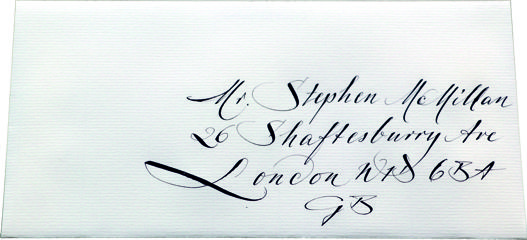 Mr. Stephen McMillan
26 Shaftesburry Ave
London W1D 6BA
GB